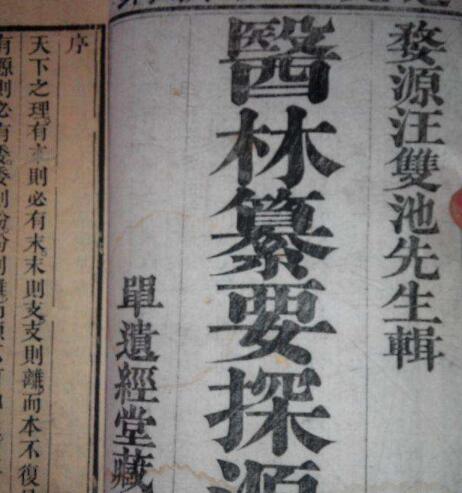 婺源汪雙池先生輯
醫林纂要探源
單遺經堂藏
序
天下之理有本則必有末末則支支則離而本不復
有源則必有委委則